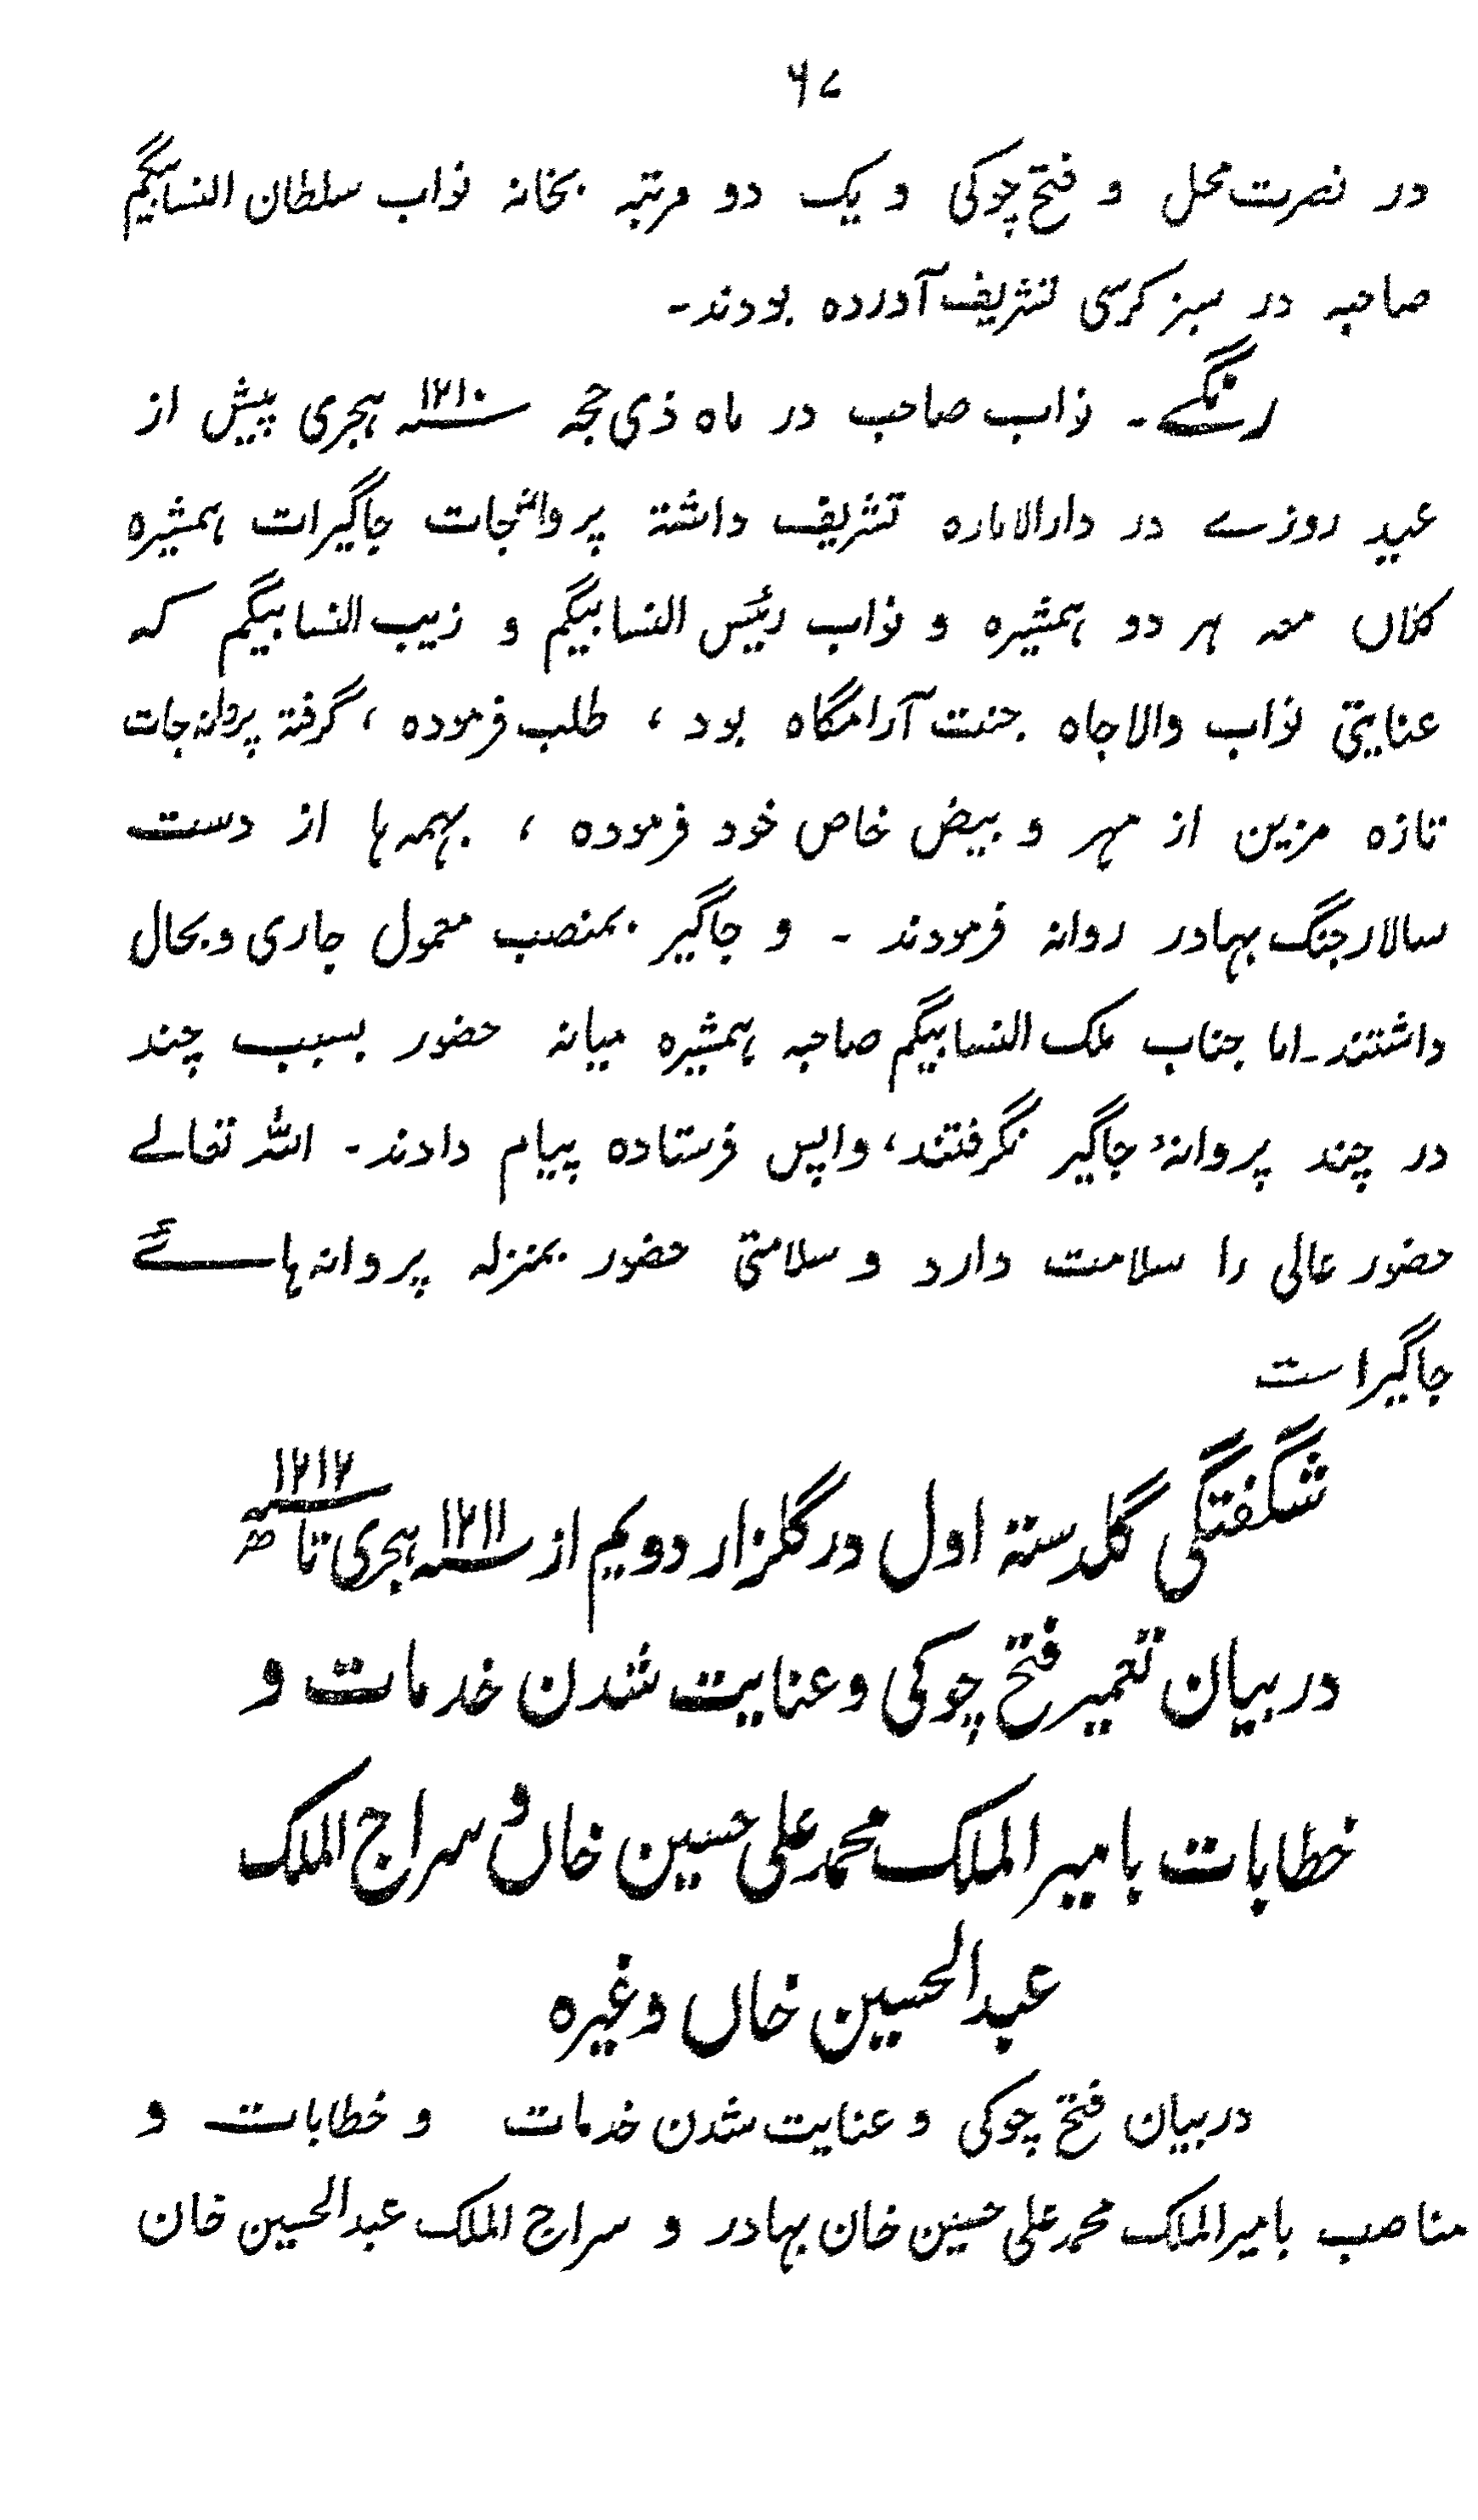 ۶۷
در نصرت محل و فتح چوکی و یک دو مرتبہ بخانہ نواب سلطان النسابیگم
صاحبہ در سبز کرسی تشریف آوردہ بودند۔
رنگے۔ نواب صاحب در ماہ ذی حجہ ۱۲۱۰ سنہ ہجری پیش از
عید روزے در دارالامارہ تشریف داشتہ پروانجات جاگیرات ہمشیرہ
کلاں معہ ہر دو ہمشیرہ و نواب رئیس النسابیگم و زیب النسابیگم کہ
عنایتی نواب والاجاہ جنت آرامگاہ بود ، طلب فرمودہ ، گرفتہ پروانہ جات
تازہ مزین از مہر و بیض خاص خود فرمودہ ، بہمہ ہا از دست
سالار جنگ بہادر روانہ فرمودند ۔ و جاگیر بمنصب معمول جاری و بحال
داشتند۔ اما جناب ملک النسابیگم صاحبہ ہمشیرہ میانہ حضور بسبب چند
در چند پروانۂ جاگیر نگرفتند، واپس فرستادہ پیام دادند۔ اللہ تعالے
حضور عالی را سلامت دارد و سلامتی حضور بمنزلہ پروانہ ہائے
جاگیر است
شگفتگی گلدستہ اول در گلزار دویم از سنہ ۱۲۱۱ ہجری تا سنہ ۱۲۱۲ھ
در بیان تعمیر فتح چوکی و عنایت شدن خدمات و
خطابات بامیرالملک محمد علی حسین خاں و سراج الملک
عبدالحسین خاں وغیرہ
در بیان فتح چوکی و عنایت شدن خدمات و خطابات و
مناصب بامیرالملک محمد علی حسین خان بہادر و سراج الملک عبدالحسین خان